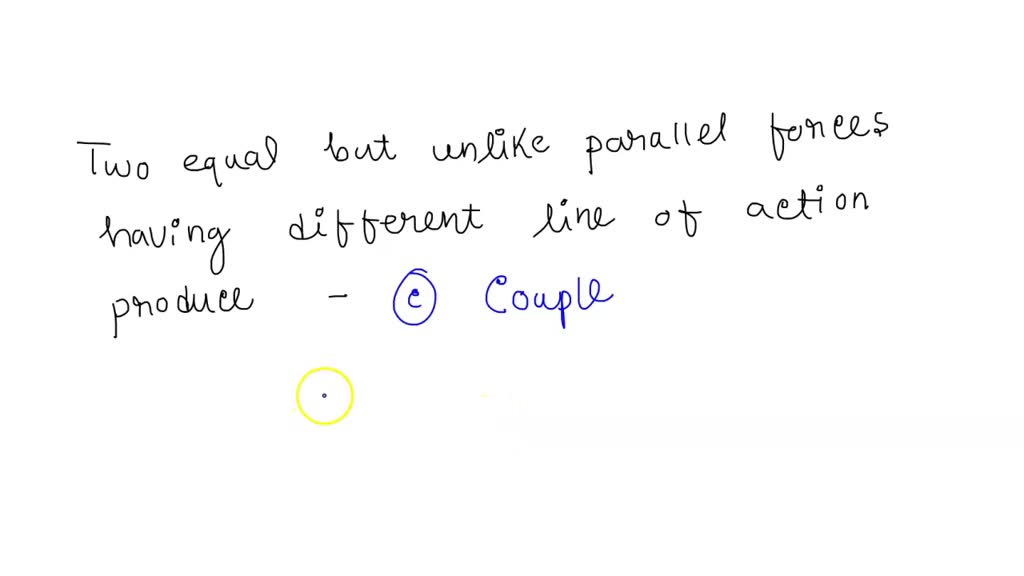 Two equal but unlike parallel forces
having different line of action
produce - c Couple